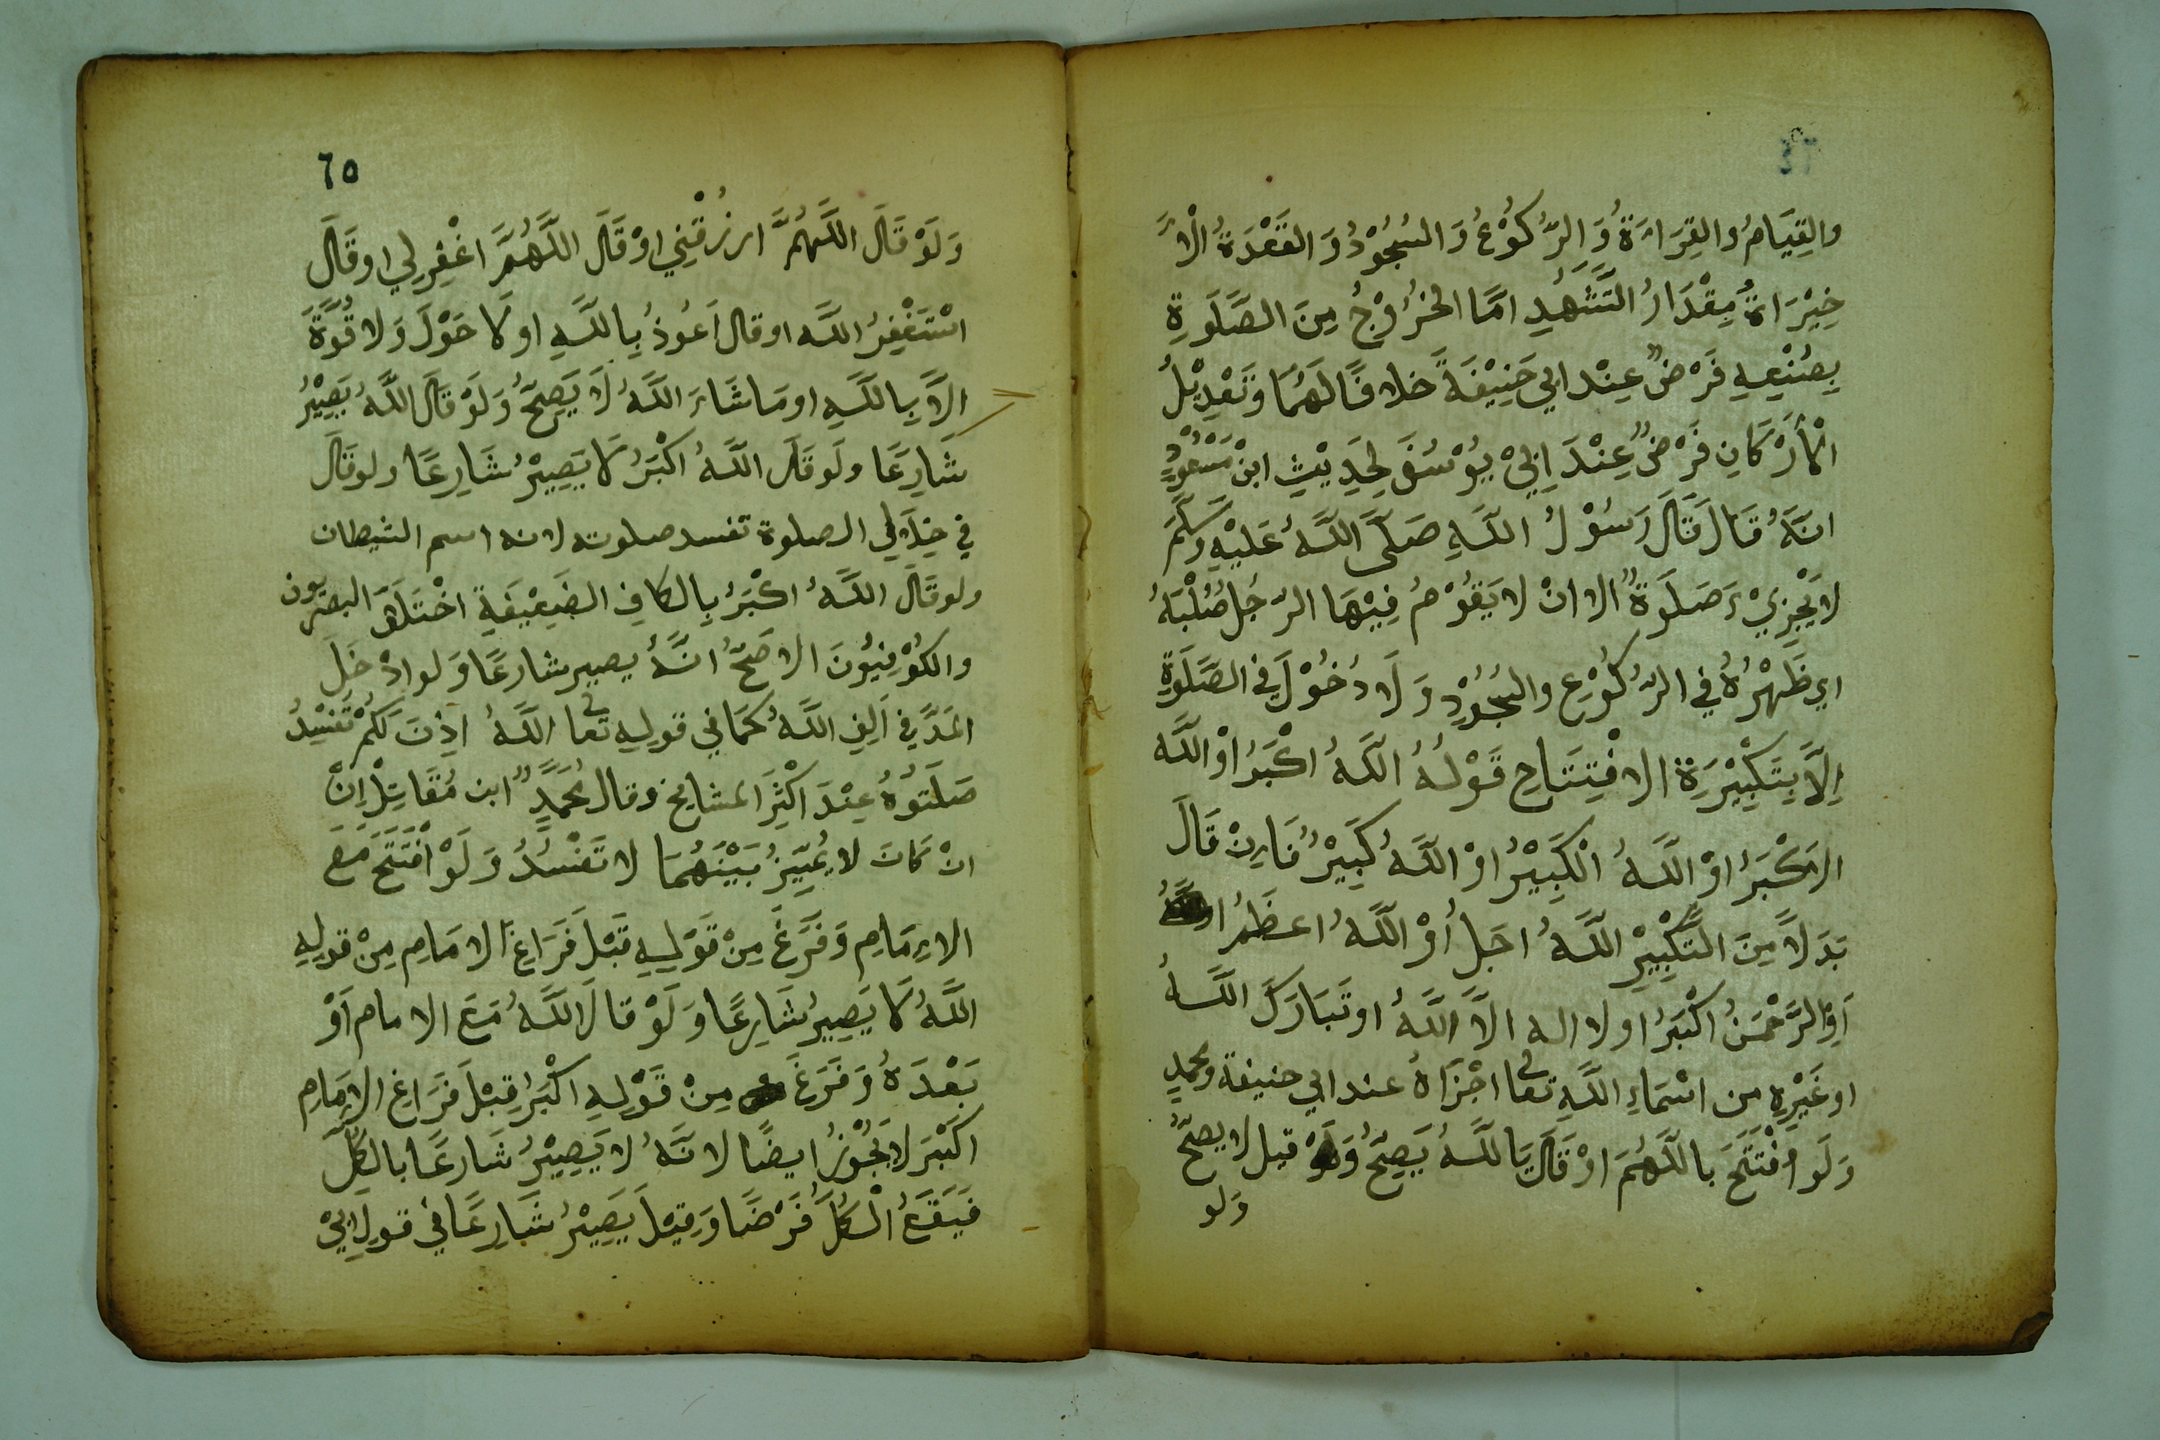 ٦٤
والقِيَامُ والقِرَاءَةُ وَالرُّكُوْعُ وَالسُجُوْدُ وَالقَعْدَةُ الْاَ
خِيْرَاةُ مِقْدَارُ التَّشَهُدِ امَّا الخُرُوْجُ مِنَ الصَّلَوةِ
بِصُنْعِهِ فَرْضٌ عِنْد ابي حَنِيْفَةَ خلافًا لَهُمَا وَتَعْدِيْلُ
الْاَرْكَانِ فَرْضٌ عِنْدَ اِبِيْ يُوْسُفَ لِحَدِيْثِ ابْن مَسْعُوْدٍ
انَّهُ قَالَ قَالَ رَسُوْلُ اللَّهِ صَلَّى اللَّهُ عَلَيْهِ وَسَلَّمَ
لا يَجْزِيْءَ صَلَوةٌ الا انْ لا يَقُوْمُ فِيْهَا الرّجُل صُلْبَهُ
اي ظَهْرُهُ في الرُّكُوْعِ والسُجُوْدِ وَلَا دُخُوْلَ فِي الصَّلَوةِ
اِلَّا بِتَكْبِيْرَةِ الافْتِتَاحِ قَوْلُهُ اللَّهُ اكْبَرُ اوْ اللَّه
الاكْبَرُ اوْ اللَّهُ الْكَبِيْرُ اوْ اللَّهُ كَبِيْرُ فَاِنْ قَالَ
بَدَلاً مِنَ التَّكْبِيْرِ اللَّهُ اجَل اُوْ اللَّهُ اعظَمُ او
اَوِ الرَّحْمَنُ اكْبَرُ اولا اله الاَّ اللَّهُ اوتَبَارَكَ اللَّهُ
اوغَيْرِهِ من اسْمَاءِ اللَّهِ تعا اجْزَاهُ عند ابي حنيفة ومحمدٍ
وَلَو افْتَتَحَ باللَّهُمَ اوْقَالَ يَا اللَّهُ يَصِحُّ وَلَوْ قيل لا يصِحُّ
وَلو
٦٥
وَلَوْ قَالَ اللَّهُمَّ ارزُقْنِي اوْقَالَ اللَّهُمَّ اغْفِرلِي اوقَالَ
اسْتَغْفِرُ اللَّه اوقال اَعُوذُ بِاللَّهِ اولَا حَوْلَ وَلا قُوَّةَ
الاَّ بِاللَّهِ اومَا شَاءَ اللَّهُ لَا يَصِحُّ وَلَوْ قَالَ اللَّهُ يَصِيْرُ
شَارِعًا ولَو قَالَ اللَّهُ اكْبَرُ لَا يَصِيْرُ شَارِعًا ولوقَالَ
في خِلَالِ الصلوة تفسد صلوته لانه اسم الشيطان
ولوقَالَ اللَّهُ اكْبَرُ بِالكافِ الضَعِيْفَةِ اخْتَلَفَ البصريون
والكُوْفِيُوْنَ الاصَحُّ انَّهُ يصير شارعًا وَلو ادْخَلَ
المَدَّ فِي اَلِفِ اللَّهُ كَمَا في قولِهِ تعا اللَّهُ اذِنَ لَكُمْ تَفْسُدُ
صَلَتوُهُ عِنْدَ اكْثِرَ المشايخ وقال مُحَمَّدٌ ابن مُقَاتِلْ اِنْ
انْ كَانَ لا يُمَيِّزُ بَيْنَهُمَا لا تَفْسُدُ وَلَوْ افْتَتَحَ مَعَ
الاِمَامِ وَفَرَغَ مِنْ قَوْلِهِ قَبْلَ فَرَاغِ الامَامِ مِنْ قولِهِ
اللَّهُ لَا يَصِيرُ شَارِعًا وَلَوْ قالَ اللَّهُ مَعَ الامام اَوْ
بَعْدَهُ وَفَرَغَ مِنْ قَوْلِهِ اكْبَرُ قِبْلَ فَرَاغِ الاِمَامِ
اكَبْرَ لا يَجُوْزُ ايضًا لانَّهُ لا يَصِيْرُ شَارعًا بالكُلِّ
فَيَقَعُ الْكُلُّ فَرْضًا وَقِيْلَ يَصِيْرُ شَارِعًا في قولِ ابيْ